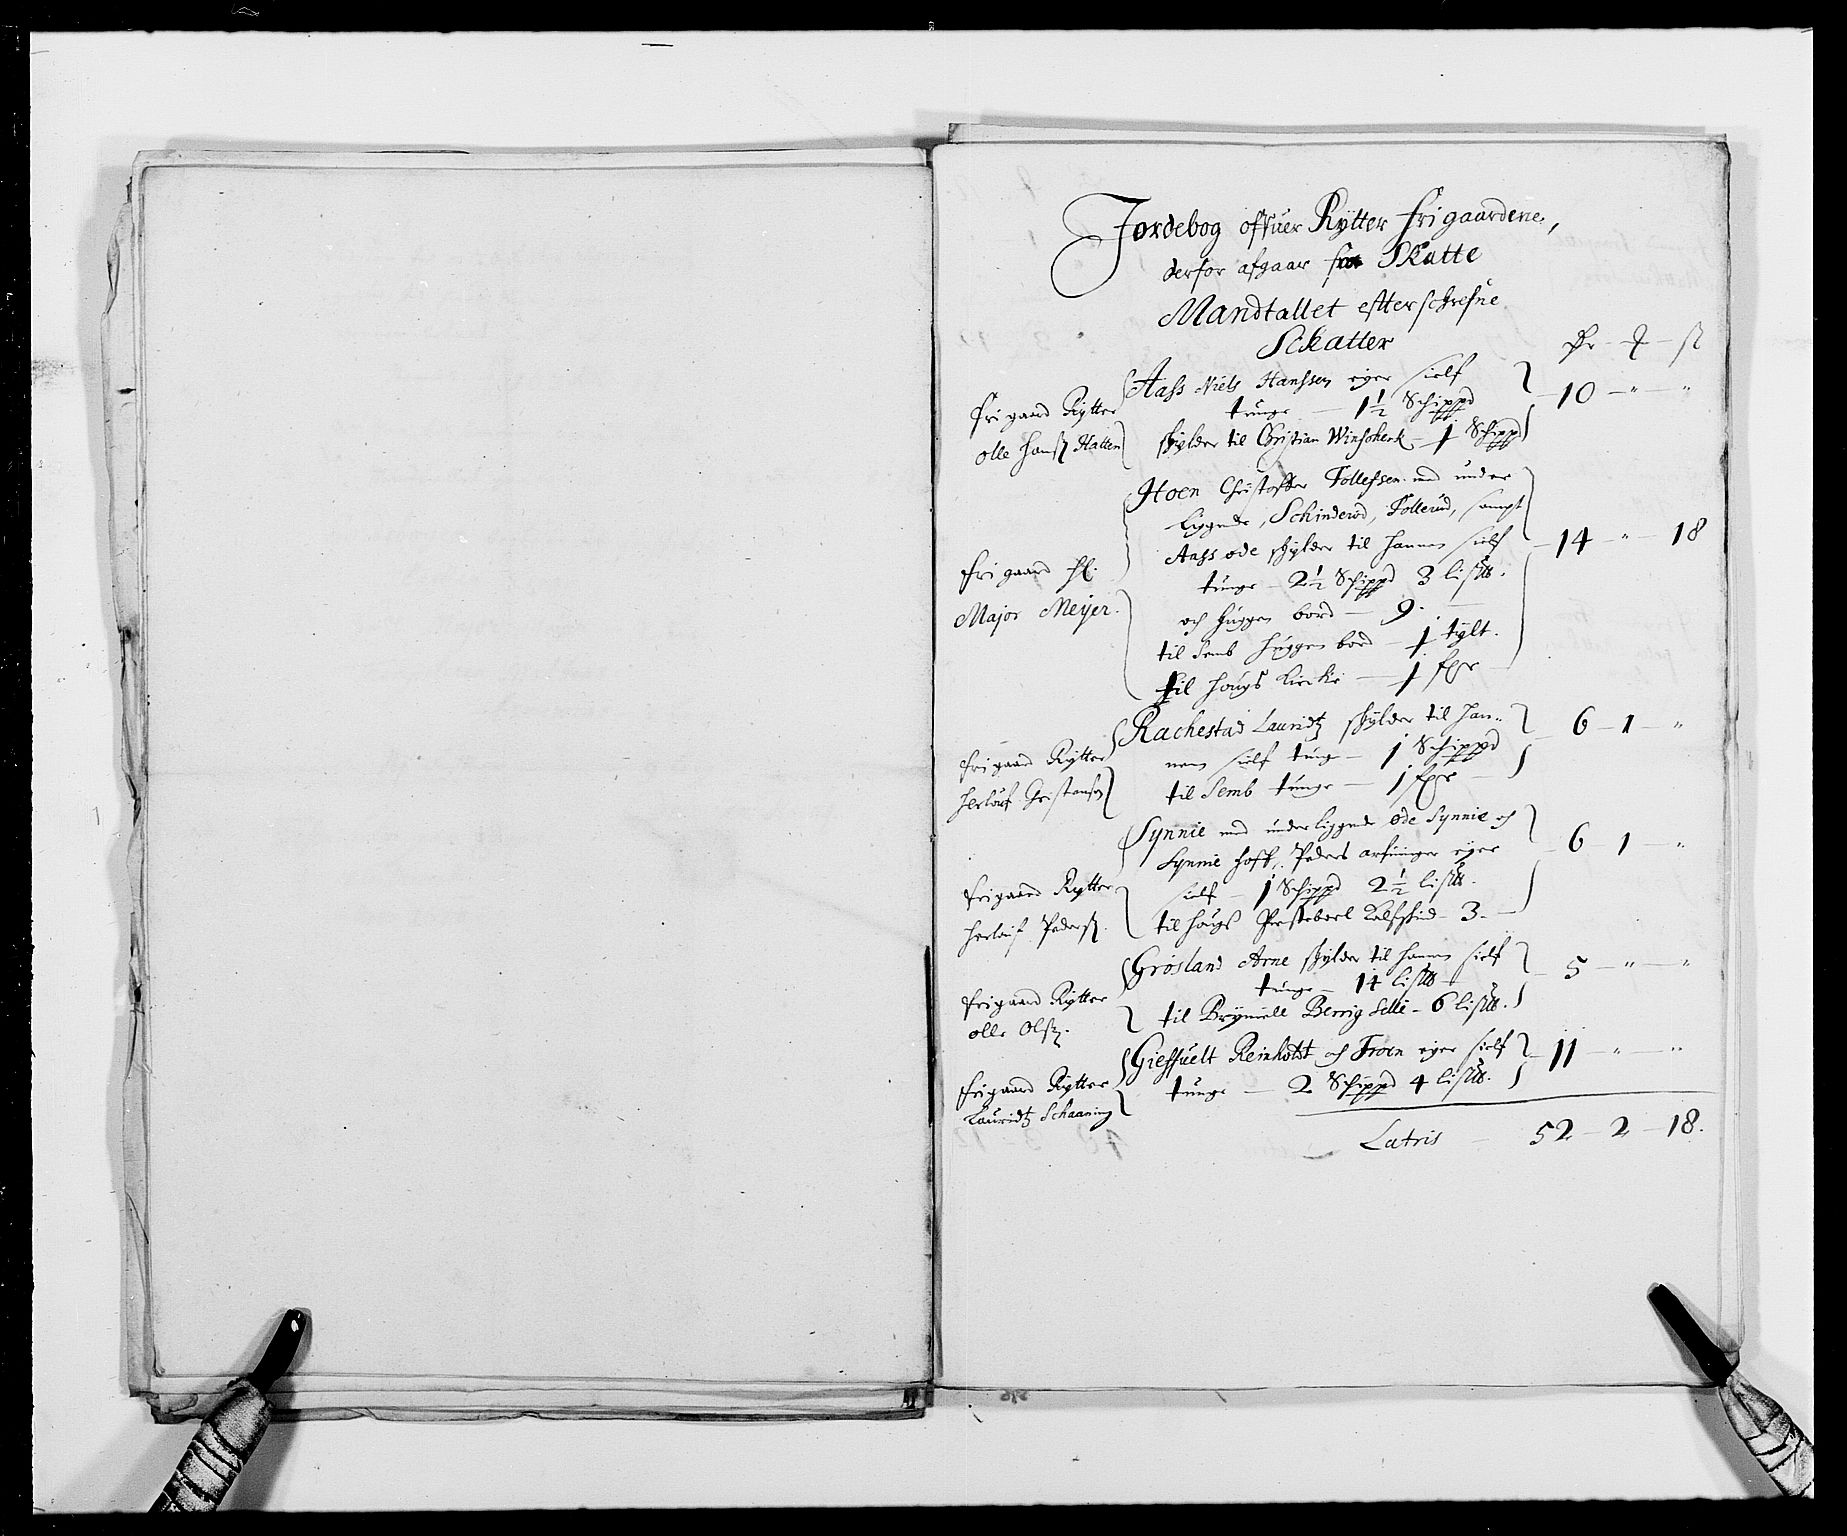 Jordebog offuer Rytter frigaardene,
derfor afgaar fra Skatte
Mandtallet efterschrefne
Schatter
Frigaard Rytter
olle Hanß Hallen
Aass Niels Hanssen eyer sielf
tunge — 1½ Schippd
skylder til Christian — 1 Schippd
10 — " — "
Frigaard Hr.
Major Meyer.
Hoen Christoffer Tollefsen med under
liggende, Schinderød, Tollerud, sampt
Aass øde skylder til hannem sielf
tunge — 2½ Schippd 3 lispd.
och huggen bord — 9.
til Semb huggen bord — 1 tylt.
til Hougs kircke — 1 fgr
14 — " — 18
Frigaard Rytter
Herlouf Christensen
Rachestad Lauridtz skylder til han-
nem sielf tung — 1 Schippd
til Semb tunge — 1 fgr
6 — 1 — "
Frigaard Rytter
Herlouf Pederß.
Synnie med underliggende øde Synnie och
Synnie hoff, Peders arfuinger eyer
sielf — 1 Schippd 2½ lispd.
til Hougs Presteboel Kalfskind — 3.
6 — 1 — "
Frigaard Rytter
olle Olß.
Grøsland Arne skylder til hannem sielf
tunge — 14 lispd
til Brynnild Berrig Selle — 6 lispd.
5 — " — "
Frigaard Rytter
Lauridtz Schaaning
Gieffuelt Reinholdt och Troen eyer sielf
tunge — 2 Schippd 4 lispd.
11 — " — "
Latris — 52 — 2 — 18.